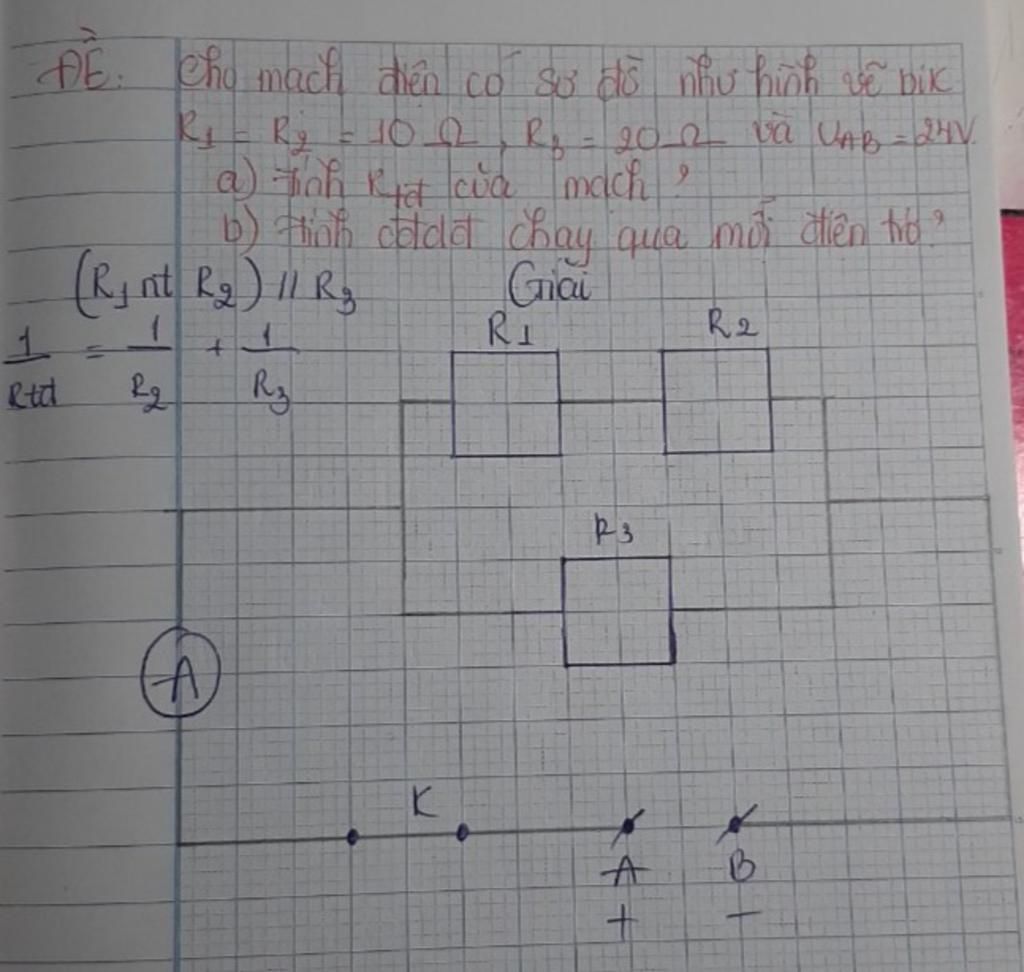 ĐỀ: Cho mạch điện có sơ đồ như hình vẽ bik
R1 = R2 = 10 Ω, R3 = 20 Ω và UAB = 24V.
a) Tính Rtđ của mạch?
b) Tính cđdđ chạy qua mỗi điện trở?
(R1 nt R2) // R3 Giải
1/Rtđ = 1/R2 + 1/R3
R1 R2
R3
A
K
A B
+ −